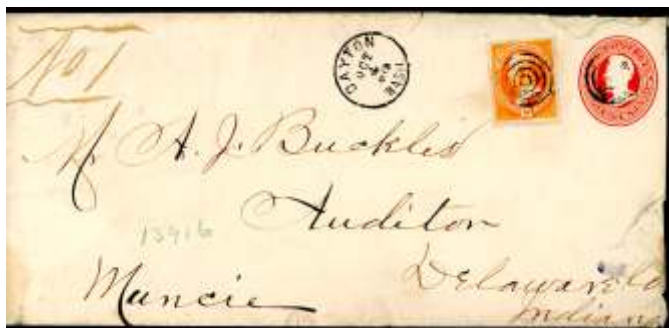 No 1
DAYTON
OCT
WASH
Mr. A. J. Buckles
Auditor
13916
Muncie
Delaware Co
Indiana